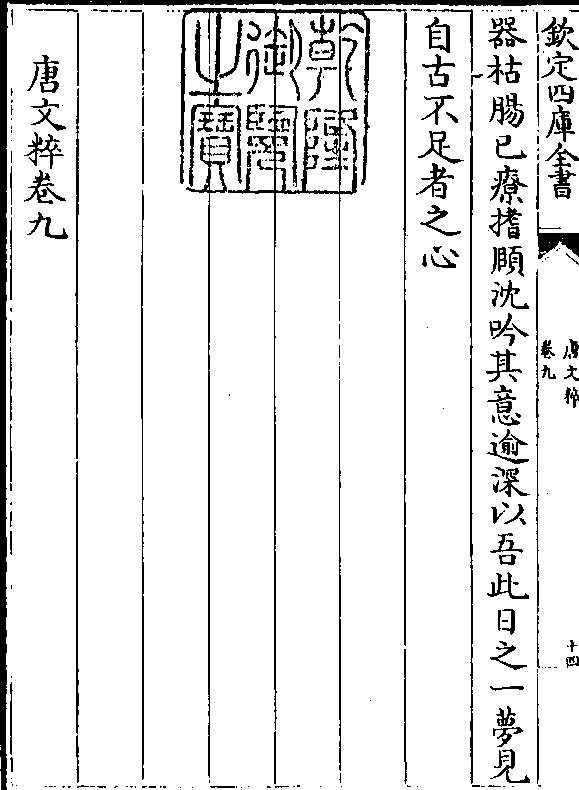 欽定四庫全書
唐文粹
卷九
十四
器枯腸已療撍頤沈吟其意逾深以吾此日之一夢見
自古不足者之心
乾隆御覽之寶
唐文粹卷九